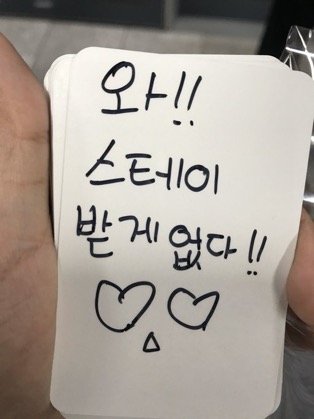 와!!
스테이
받게 없다!!